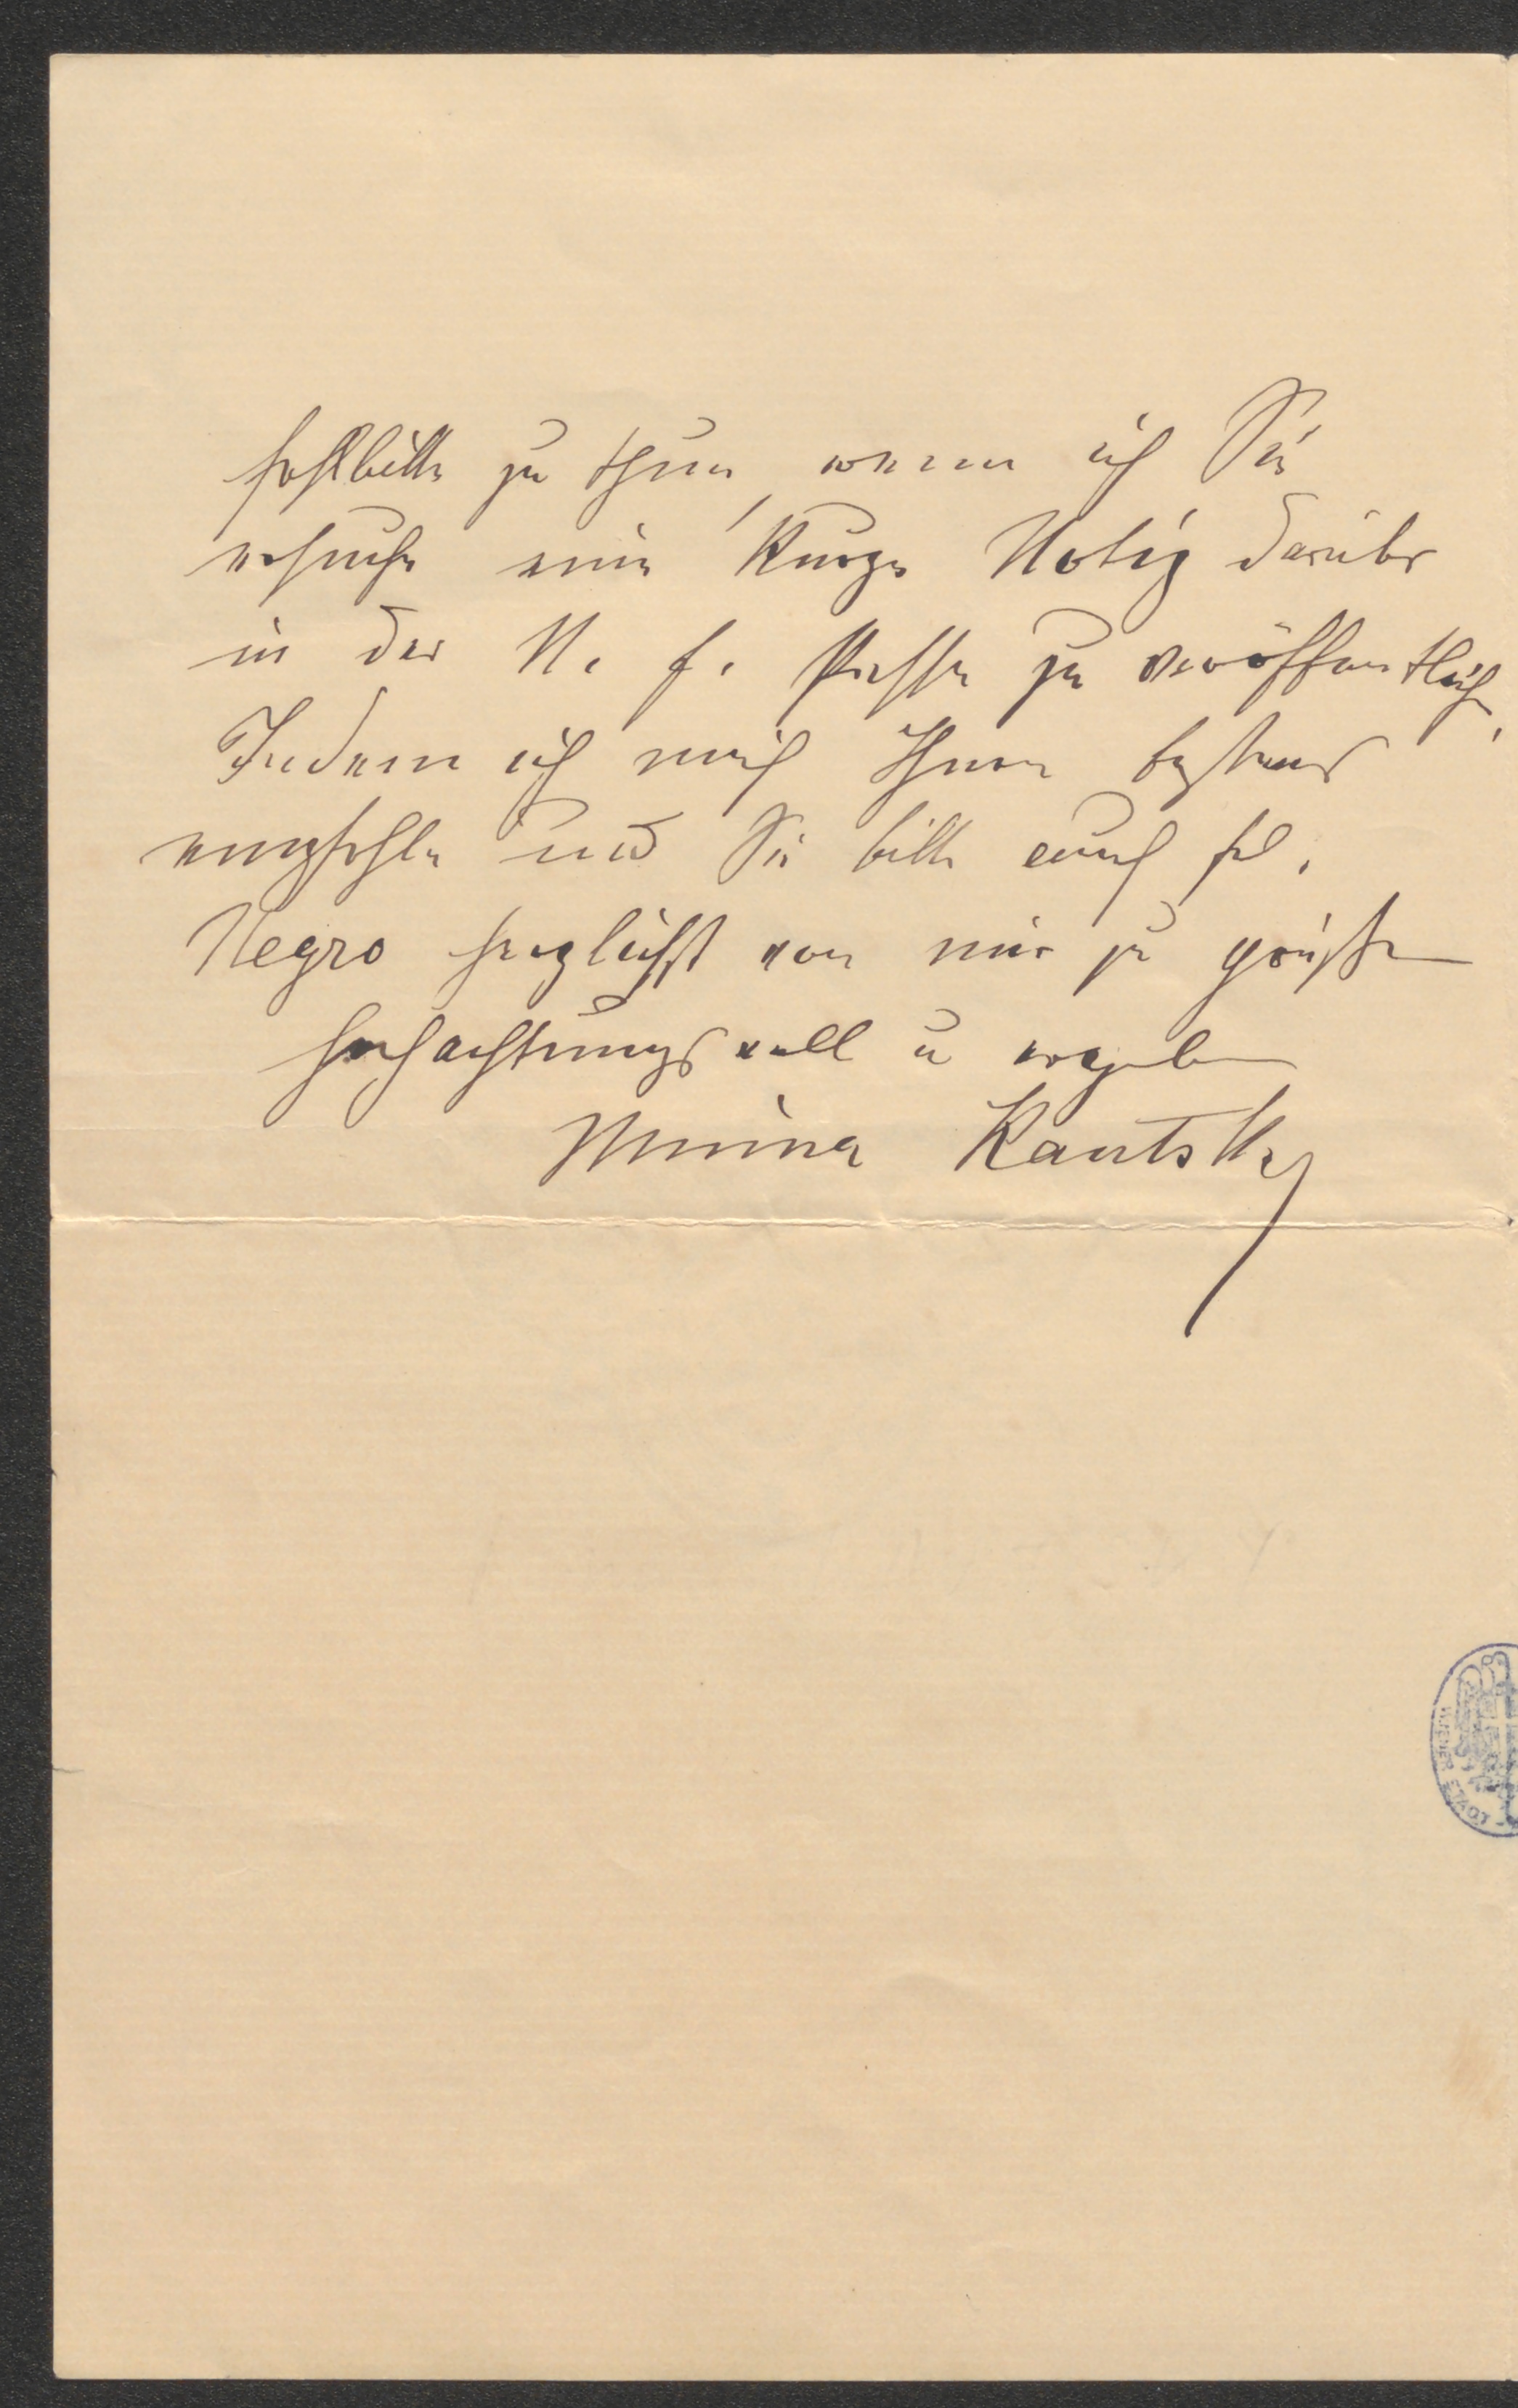 Fehlbitte zu thun, wenn ich Sie
ersuche eine kurze Notiz darüber
in der N. f. Presse zu veröffentlichen,
Indem ich mich Ihnen bestens
empfehle und Sie bitte auch Frl.
Negro herzlichst von mir zu grüßen
hochachtungsvoll u ergeben
Minna Kautsky
WIENER STADT-